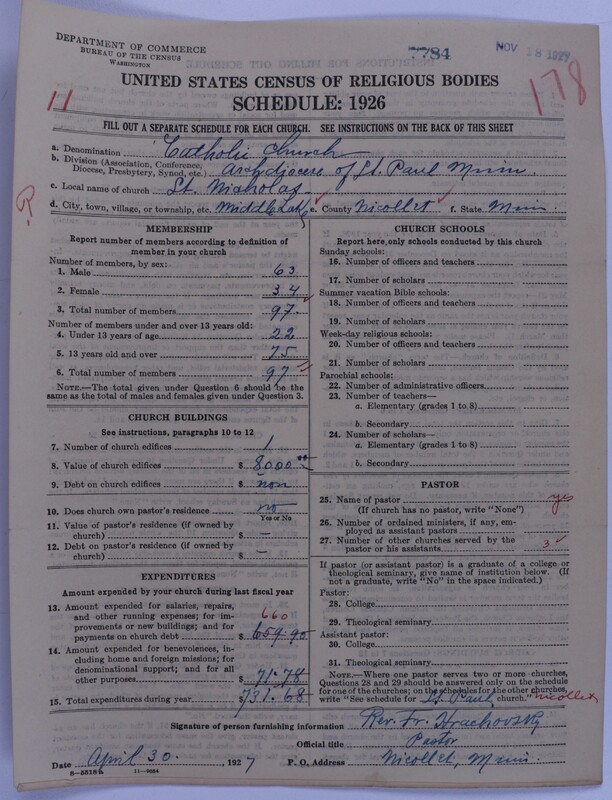 DEPARTMENT OF COMMERCE
BUREAU OF THE CENSUS
WASHINGTON
7784
NOV 18 1927
178
11
UNITED STATES CENSUS OF RELIGIOUS BODIES
SCHEDULE: 1926
FILL OUT A SEPARATE SCHEDULE FOR EACH CHURCH. SEE INSTRUCTIONS ON THE BACK OF THIS SHEET
a. Denomination Catholic Church
b. Division (Association, Conference, Diocese, Presbytery, Synod, etc.) Archdiocese of St. Paul Minn.
c. Local name of church St. Nicholas
d. City, town, village, or township, etc. Middle Lake e. County Nicollet f. State Minn.
MEMBERSHIP
Report number of members according to definition of
member in your church
Number of members, by sex:
1. Male 63
2. Female 34
3. Total number of members 97
Number of members under and over 13 years old:
4. Under 13 years of age 22
5. 13 years old and over 75
6. Total number of members 97
NOTE.—The total given under Question 6 should be the
same as the total of males and females given under Question 3.
CHURCH BUILDINGS
See instructions, paragraphs 10 to 12
7. Number of church edifices 1
8. Value of church edifices $ 8000.
9. Debt on church edifices $ non
10. Does church own pastor's residence no
Yes or No
11. Value of pastor's residence (if owned by
church) $ —
12. Debt on pastor's residence (if owned by
church) $ —
EXPENDITURES
Amount expended by your church during last fiscal year
13. Amount expended for salaries, repairs,
and other running expenses; for im-
provements or new buildings; and for
payments on church debt $ 659.90
660
14. Amount expended for benevolences,
including home and foreign missions; for
denominational support; and for all
other purposes $ 71.78
15. Total expenditures during year $ 731.68
CHURCH SCHOOLS
Report here only schools conducted by this church
Sunday schools:
16. Number of officers and teachers
17. Number of scholars
Summer vacation Bible schools:
18. Number of officers and teachers
19. Number of scholars
Week-day religious schools:
20. Number of officers and teachers
21. Number of scholars
Parochial schools:
22. Number of administrative officers
23. Number of teachers—
a. Elementary (grades 1 to 8)
b. Secondary
24. Number of scholars—
a. Elementary (grades 1 to 8)
b. Secondary
PASTOR
25. Name of pastor yes
(If church has no pastor, write "None")
26. Number of ordained ministers, if any, em-
ployed as assistant pastors
27. Number of other churches served by the
pastor or his assistants 3
If pastor (or assistant pastor) is a graduate of a college or
theological seminary, give name of institution below. (If
not a graduate, write "No" in the space indicated.)
Pastor:
28. College
29. Theological seminary
Assistant pastor:
30. College
31. Theological seminary
NOTE.—Where one pastor serves two or more churches,
Questions 28 and 29 should be answered only on the schedule
for one of the churches; on the schedules for the other churches,
write "See schedule for St. Paul church." Nicollet
Signature of person furnishing information Rev. Fr. Hrachovsky
Official title Pastor
Date April 30, 1927 P. O. Address Nicollet, Minn.
8—5518b 11—9064